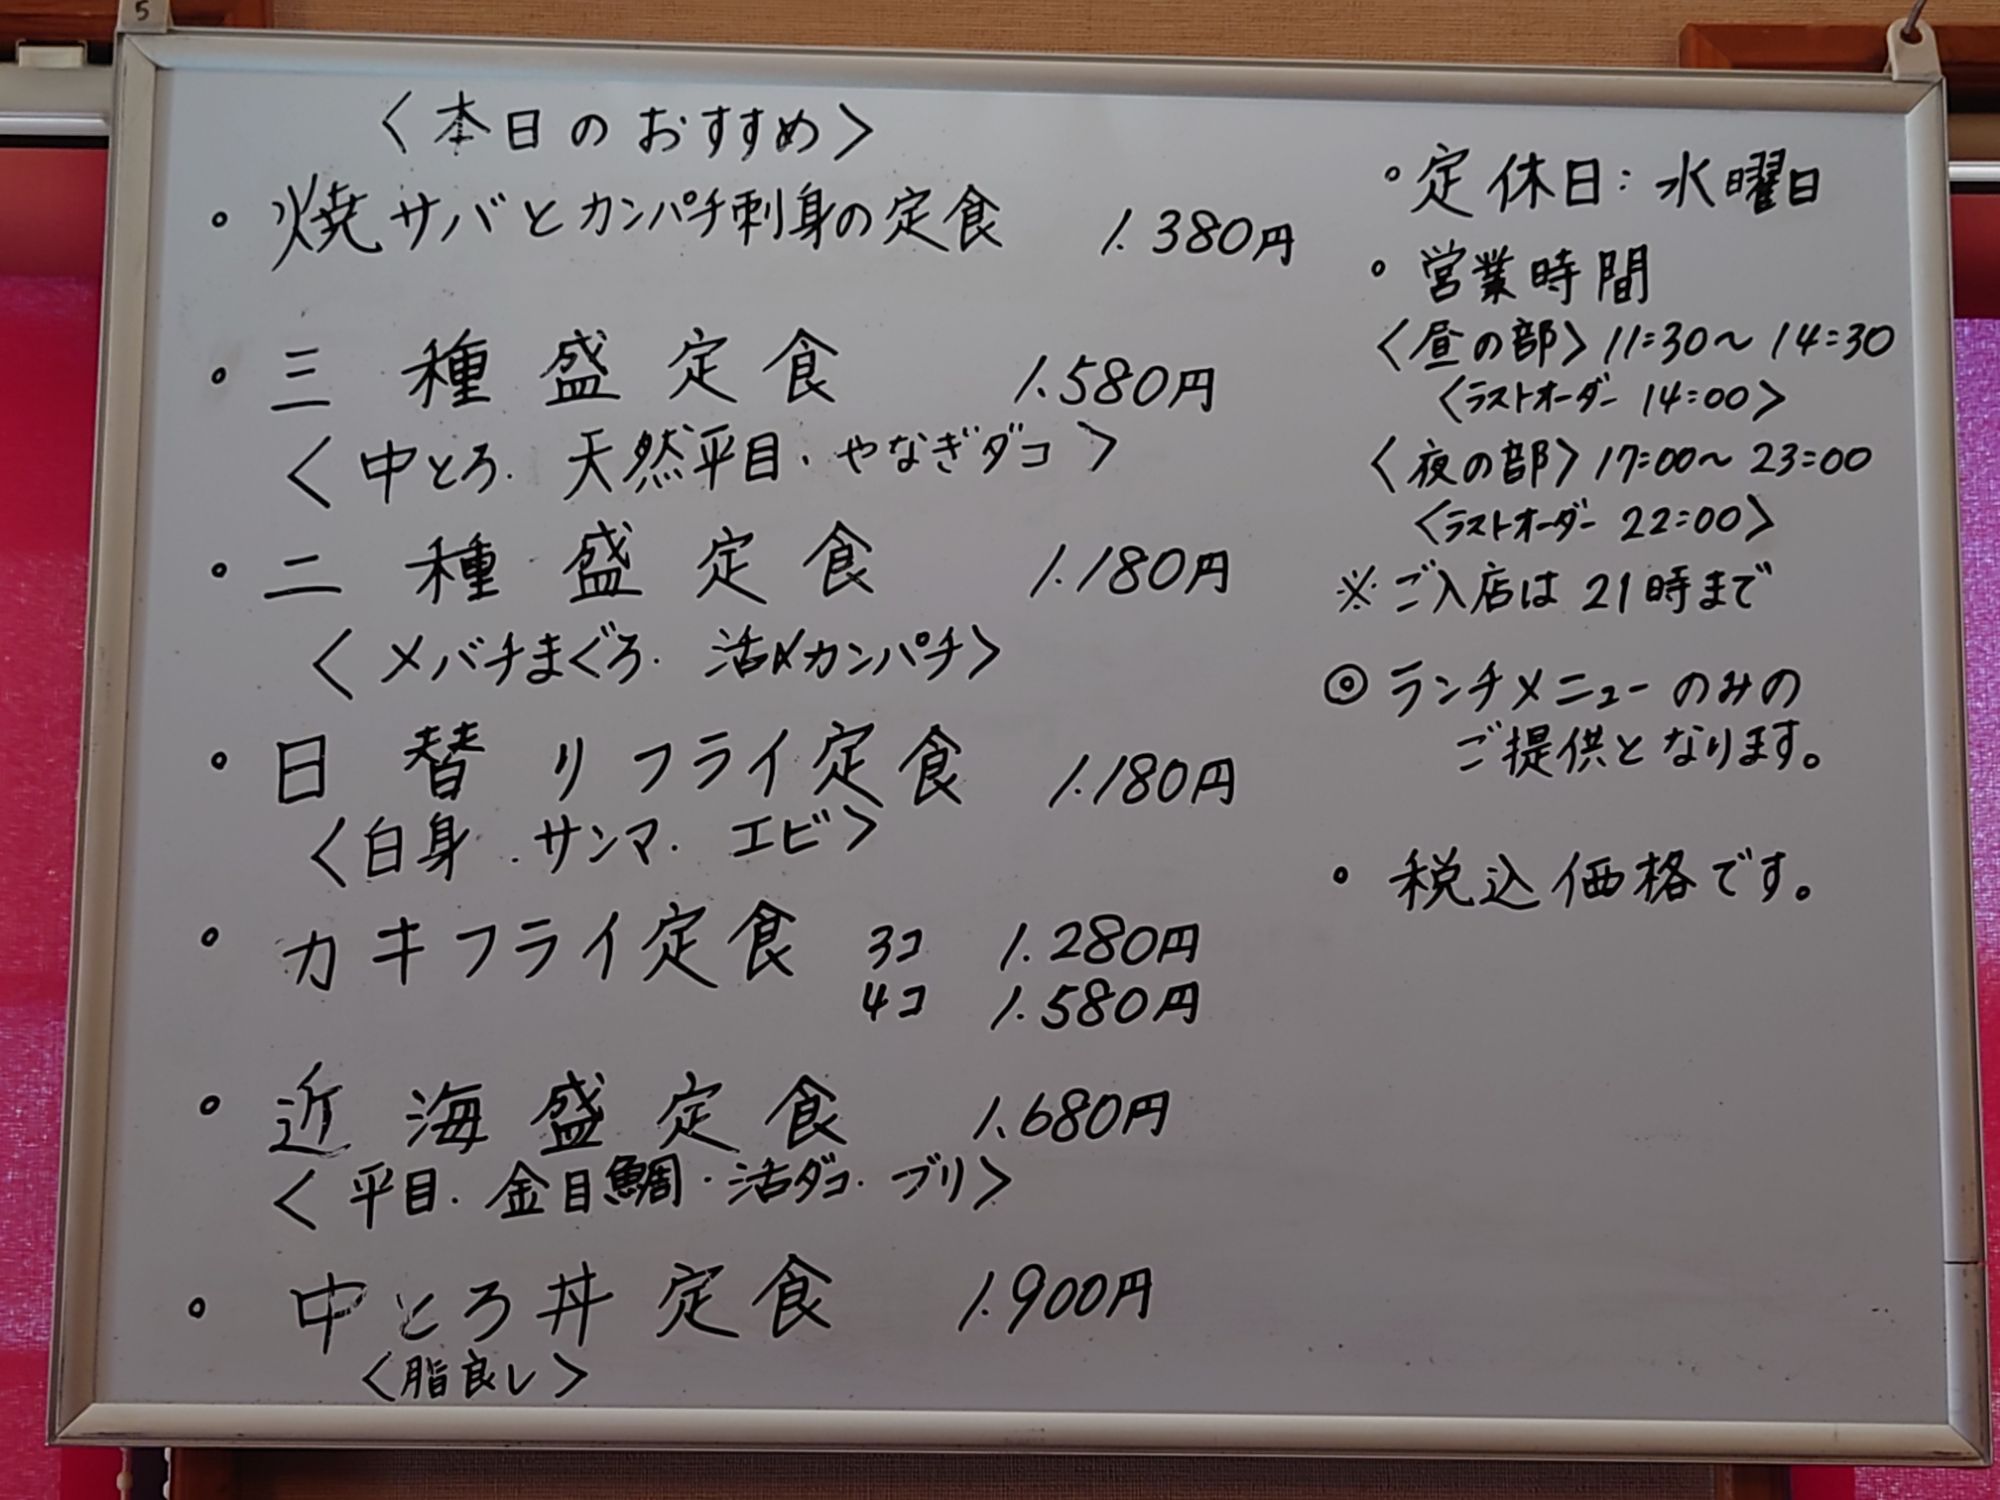 5
〈本日のおすすめ〉
◦ 焼サバとカンパチ刺身の定食 1.380円
◦ 三種盛定食 1.580円
〈中とろ.天然平目.やなぎダコ〉
◦ 二種盛定食 1.180円
〈メバチまぐろ.活〆カンパチ〉
◦ 日替リフライ定食 1.180円
〈白身.サンマ.エビ〉
◦ カキフライ定食 3コ 1.280円
4コ 1.580円
◦ 近海盛定食 1.680円
〈平目.金目鯛.活ダコ.ブリ〉
◦ 中とろ丼定食 1.900円
〈脂良し〉
◦ 定休日:水曜日
◦ 営業時間
〈昼の部〉11:30〜14:30
〈ラストオーダー 14:00〉
〈夜の部〉17:00〜23:00
〈ラストオーダー 22:00〉
※ご入店は21時まで
◎ ランチメニューのみの
ご提供となります。
◦ 税込価格です。